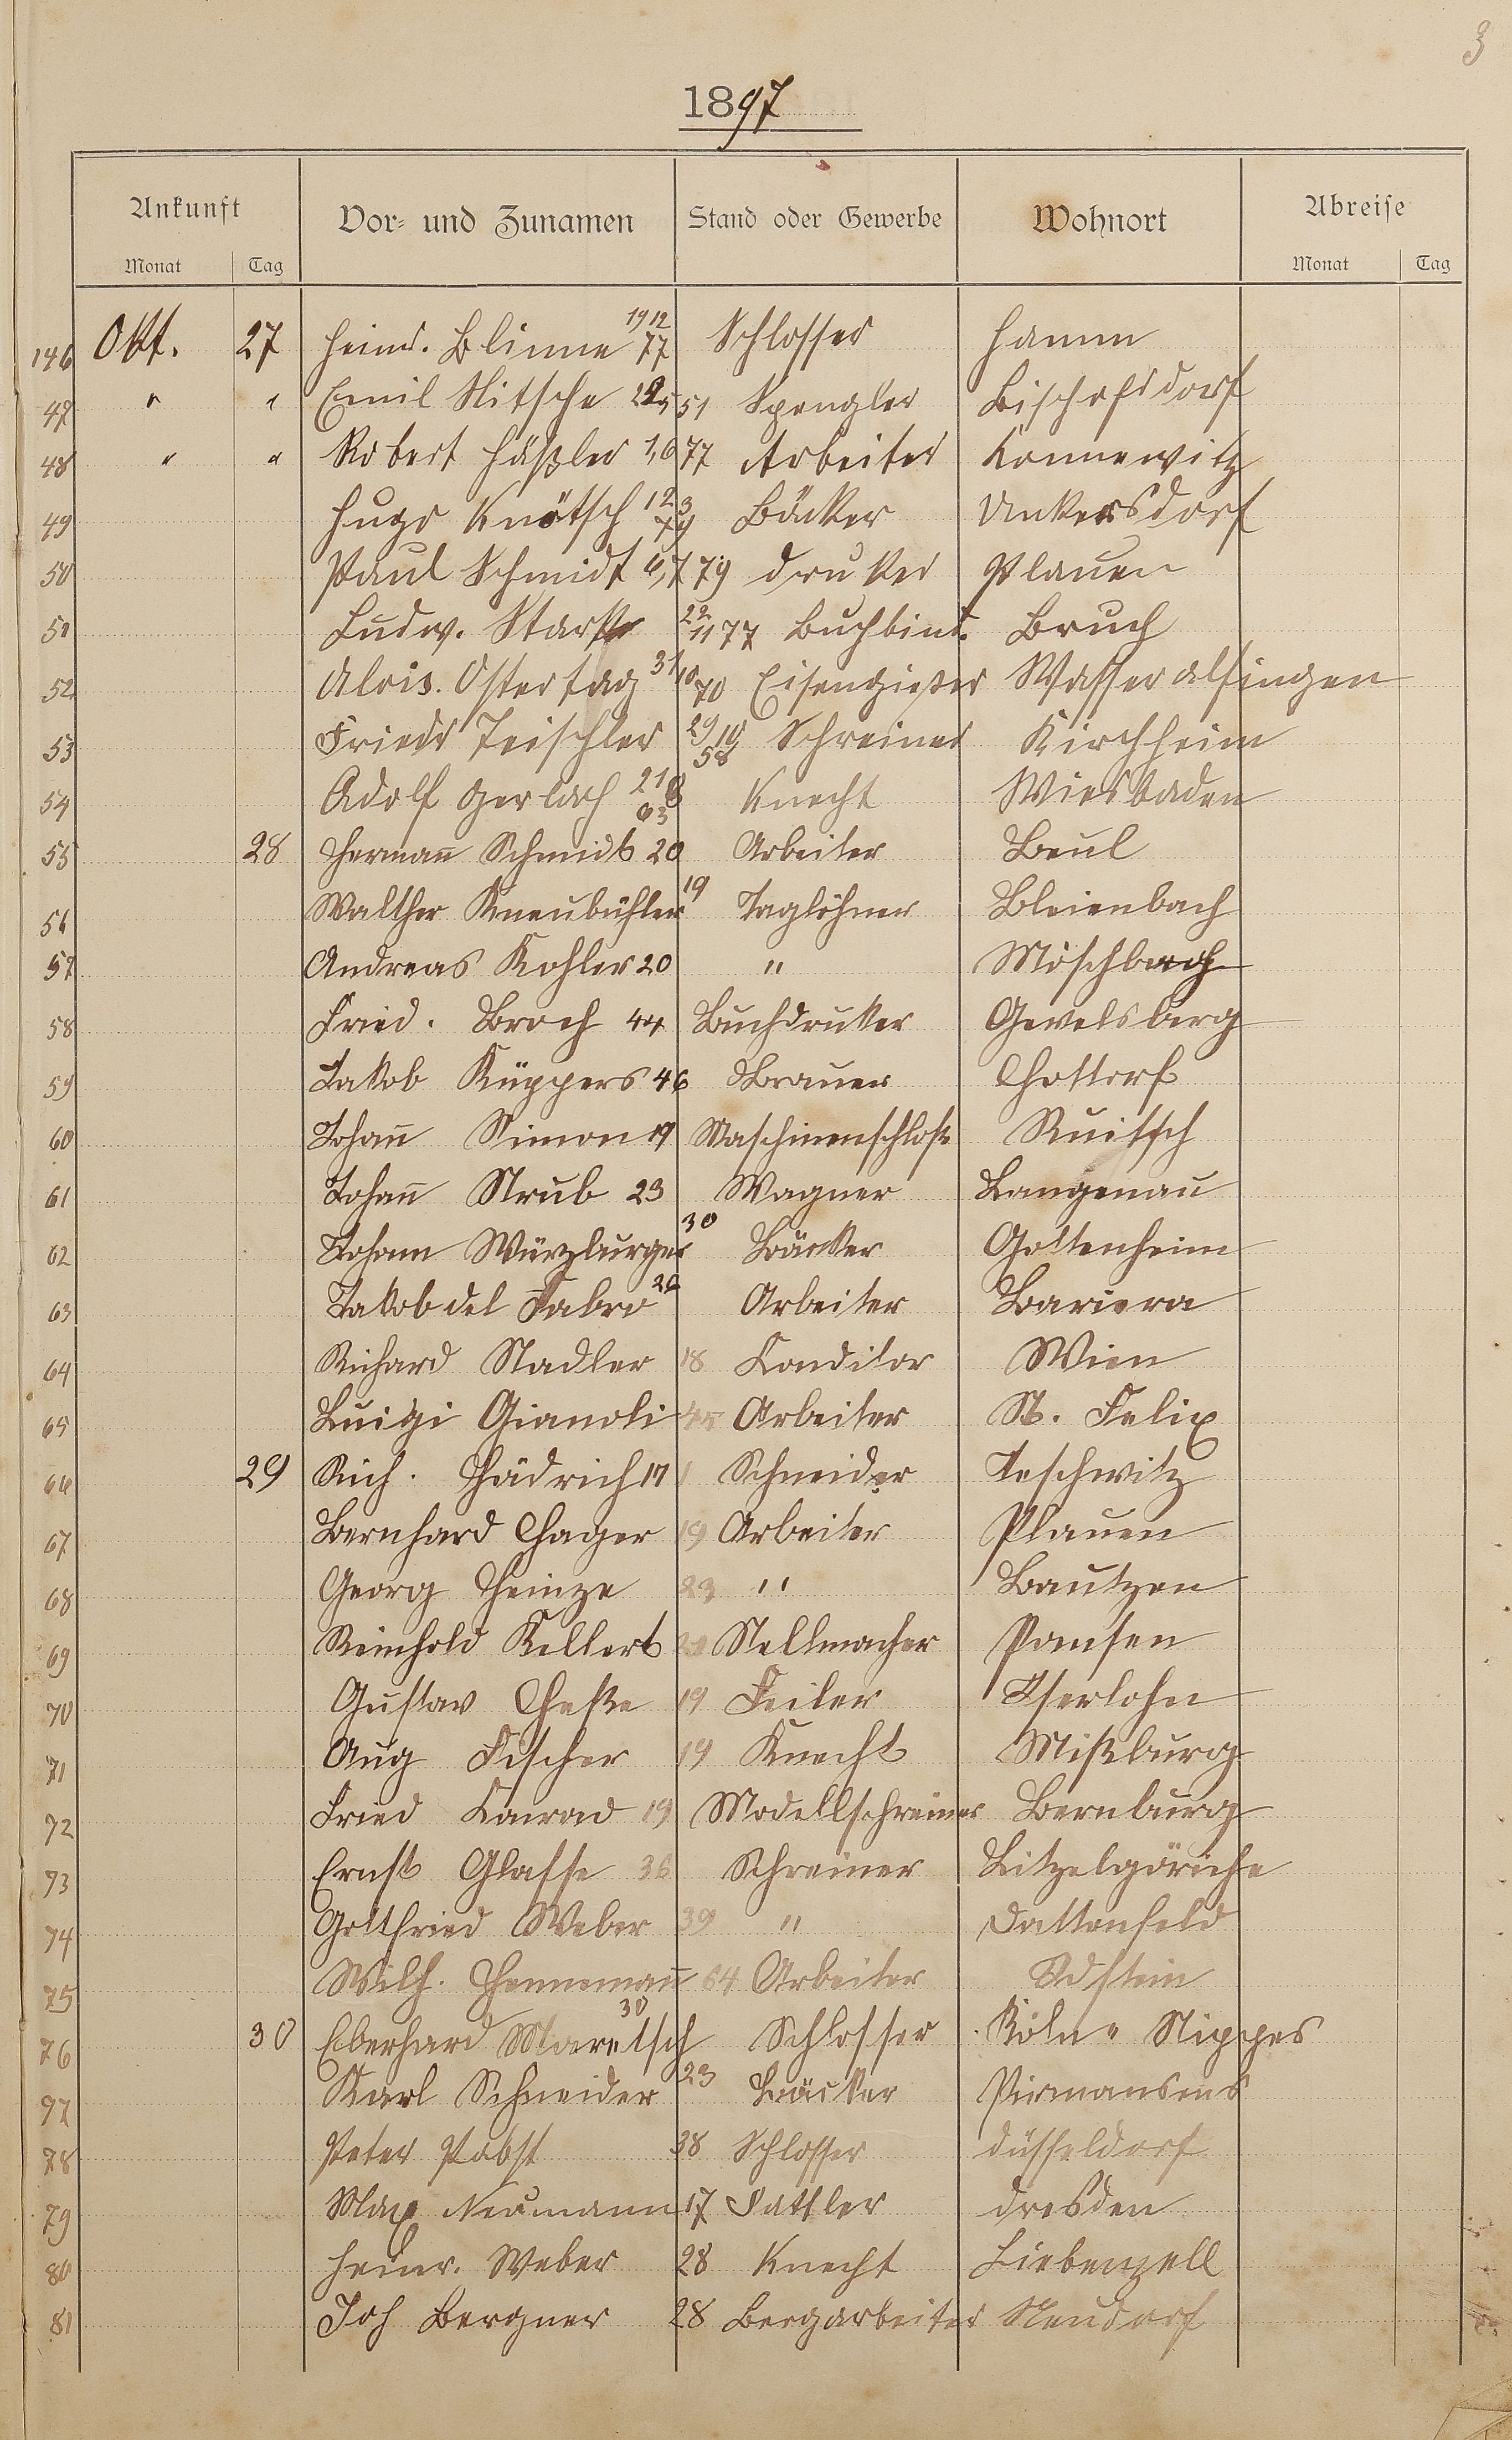 3
1897
Ankunft Vor- und Zunamen Stand oder Gewerbe Wohnort Abreise
Monat Tag Monat Tag
146 Okt. 27 Heinr. Blinne 19 12 77 Schlosser Hamm
47 " " Emil Nitsche 51 Spengler Bischofsdorf
48 " " Robert Häßler 1,6 77 Arbeiter Konnewitz
49 Hugo Knötsch 12 3 79 Bäcker Unkersdorf
50 Paul Schmidt 6,7 79 Druker Plauen
51 Ludw. Stark 22 11 77 Buchbind. Bruch
52 Alois. Ostertag 31 10 70 Eisengießer Wasseralfingen
53 Friedr Teischler 29 10 58 Schreiner Kirchheim
54 Adolf Gerlach 21 8 63 Knecht Wiesbaden
55 28 Hermañ Schmidt 20 Arbeiter Beul
56 Walther Kneubühler 19 Taglöhner Bleienbach
57 Andreas Kohler 20 " Möschbach
58 Fried. Broch 44 Buchdrukker Gevelsberg
59 Jakob Küppers 46 Brauer Hottorf
60 Johañ Simon 19 Maschinenschloß Ruitsch
61 Johañ Strub 23 Wagner Langenau
62 Johann Würzburger 30 Bäcker Gottenheim
63 Jakob del Fabro 26 Arbeiter Bariera
64 Richard Stadler 18 Conditor Wien
65 Luigi Gianoli 45 Arbeiter St. Felix
66 29 Rich. Hädrich 17 Schneider Teschwitz
67 Bernhard Hager 19 Arbeiter Plauen
68 Georg Heinze 23 " Bautzen
69 Reinhold Kellert 20 Stellmacher Pausen
70 Gustav Heße 19 Feiler Iserlohn
71 Aug Fischer 19 Knecht Mißburg
72 Fried Conrad 19 Modellschreiner Bernburg
73 Ernst Glasse 36 Schreiner Litzelgöricke
74 Gottfried Weber 39 " Dattenfeld
75 Wilh. Hennemañ 64 Arbeiter Idstein
76 30 Eberhard Maretsch 30 Schlosser Köln " Nippes
97 Karl Schneider 23 Bäcker Pirmansens
78 Peter Pabst 38 Schlosser Düsseldorf
79 Max Neumann 17 Sattler Dresden
80 Heinr. Weber 28 Knecht Liebenzell
81 Joh Bergner 28 Bergarbeiter Neudorf